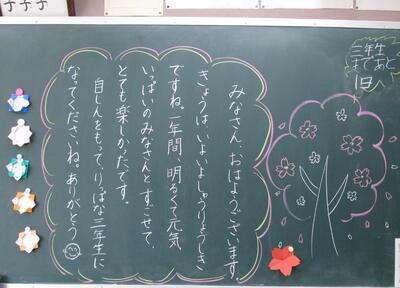 三年生
まであと
1日
みなさん、おはようございます。
きょうは、いよいよしゅうりょうしき
ですね。一年間、明るくて元気
いっぱいのみなさんとすごせて、
とても楽しかったです。
自しんをもって、りっぱな三年生に
なってくださいね。ありがとう